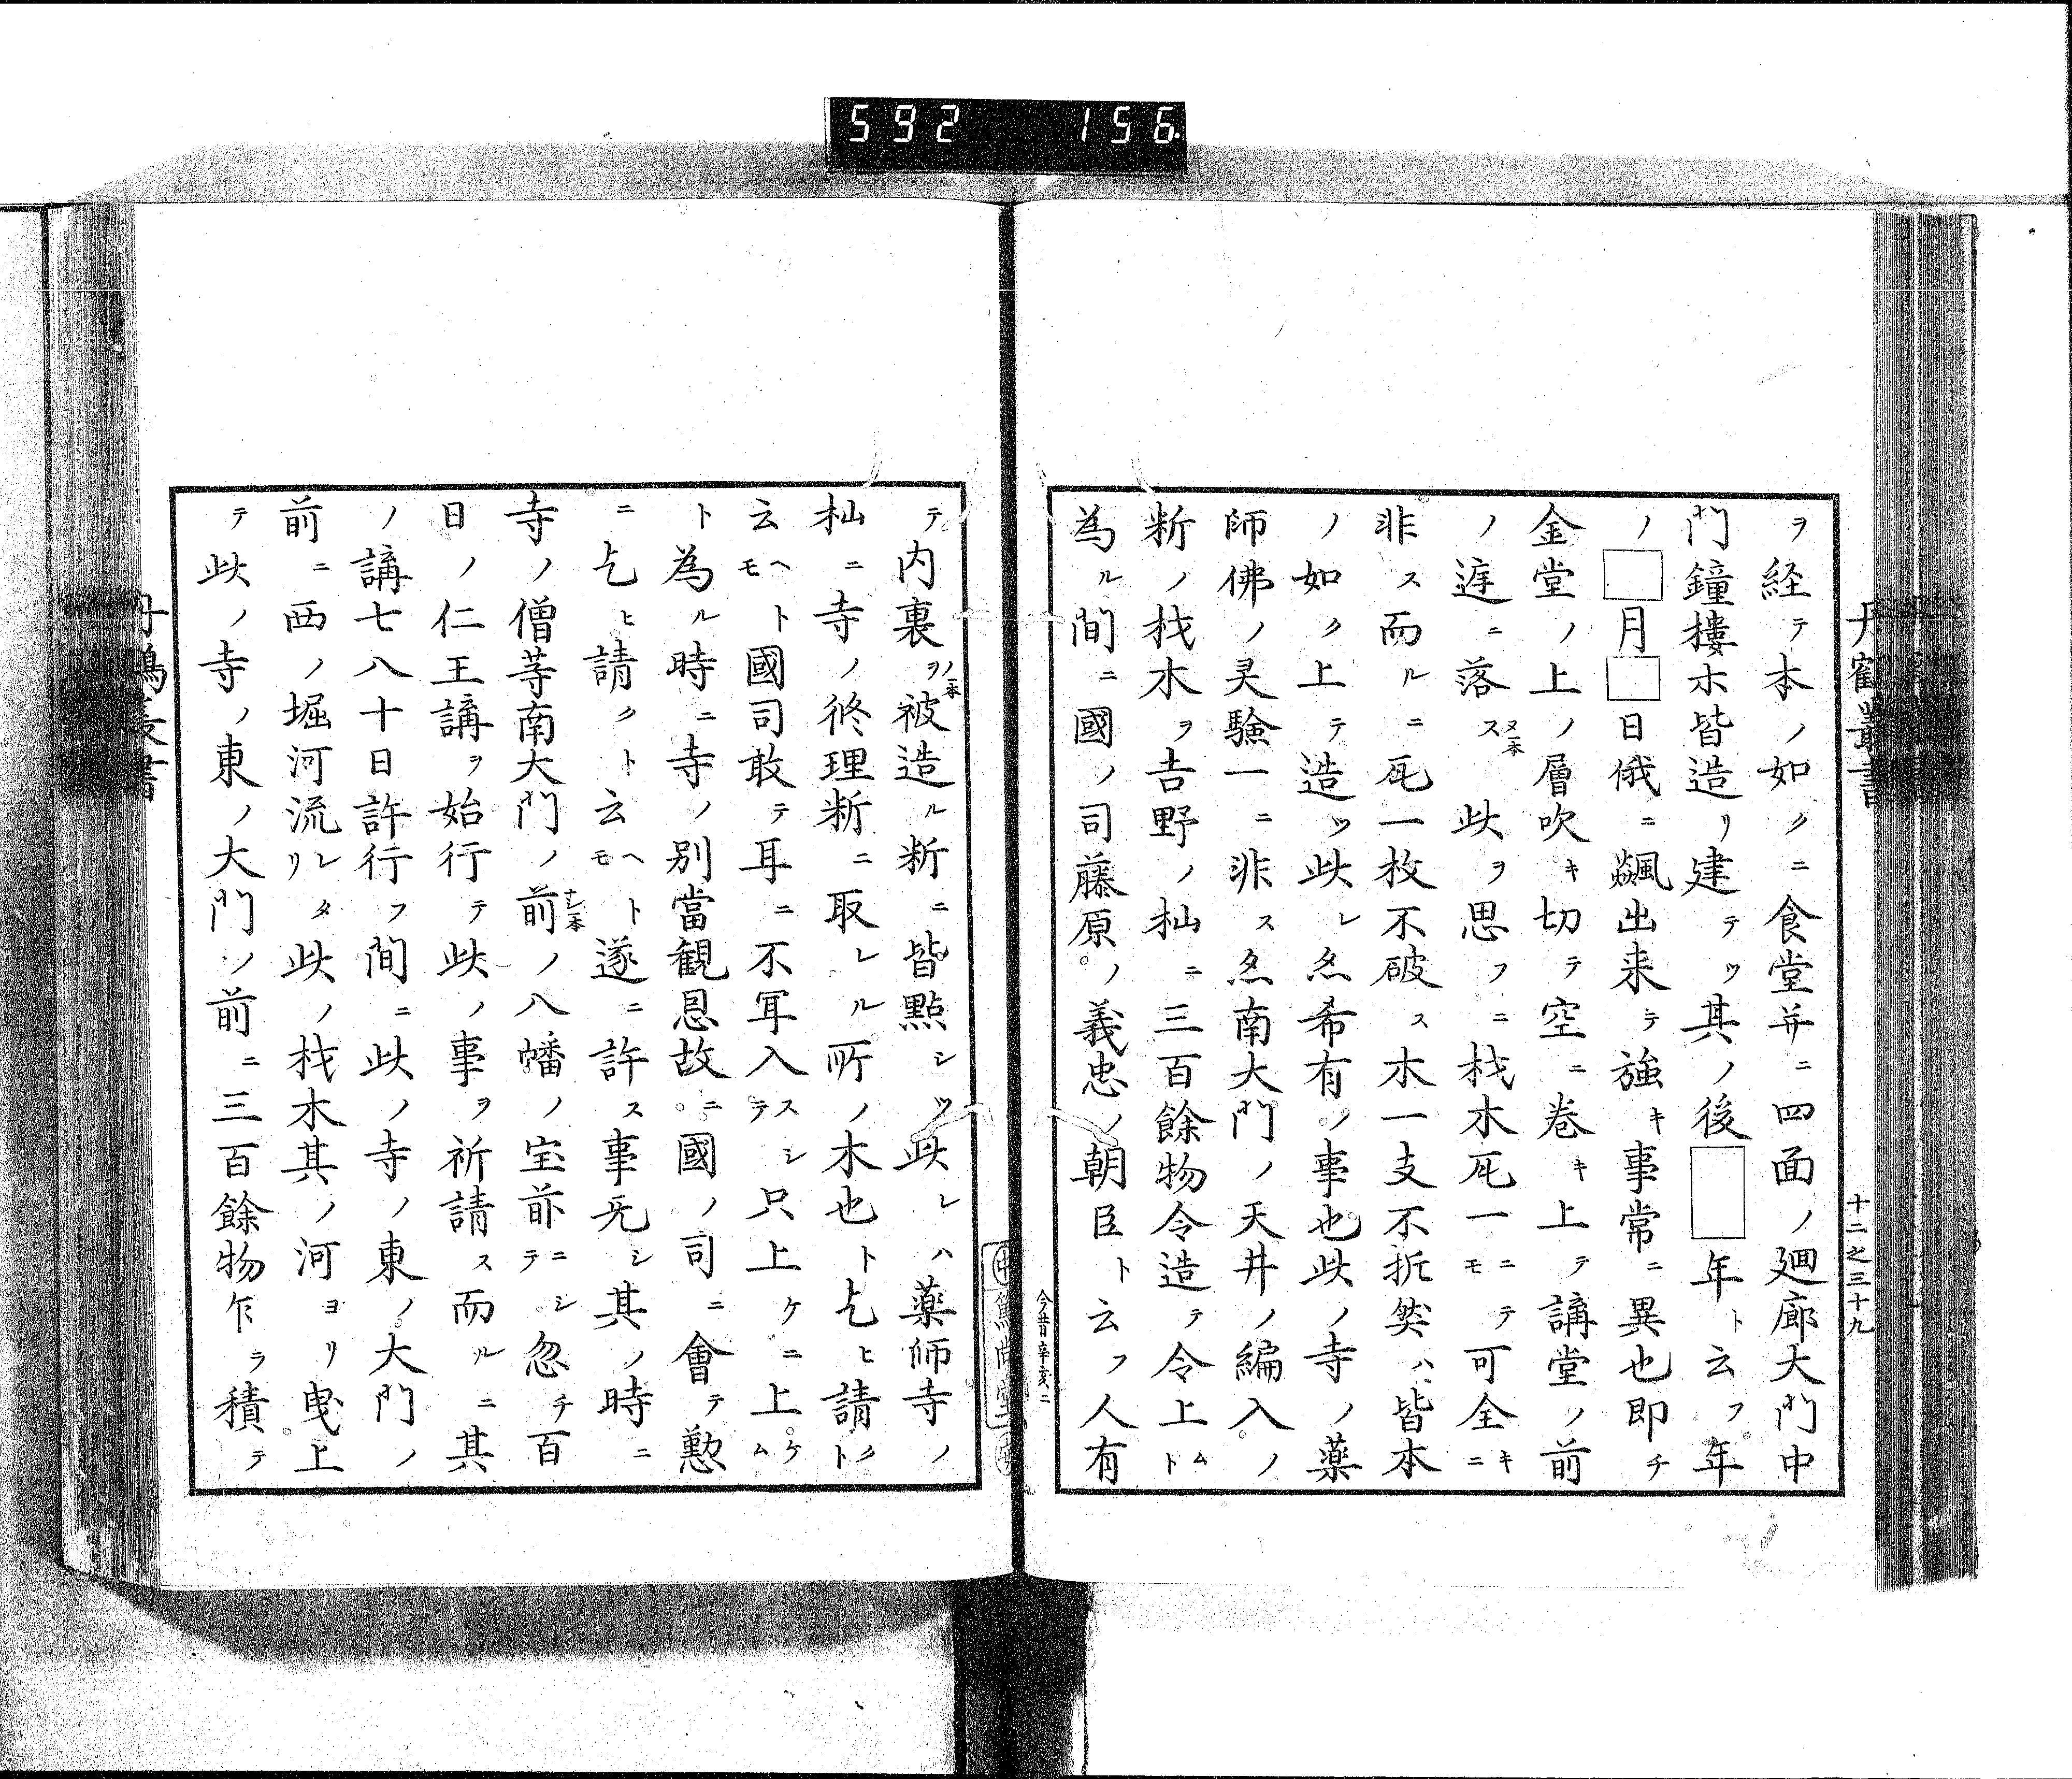 592 156.
丹鶴叢書
十二之三十九
ヲ経テ本ノ如クニ食堂并ニ四面ノ廻廊大門中
門鐘樓ホ皆造リ建テツ其ノ後□年ト云フ年
ノ□月□日俄ニ飈出来テ強キ事常ニ異也即チ
金堂ノ上ノ層吹キ切テ空ニ巻キ上テ講堂ノ前
ノ遅ニ落スヌ一本此ヲ思フニ材木瓦一ニテモ可全キニ
非ス而ルニ瓦一枚不破ス木一支不折然ハ皆本
ノ如ク上テ造ツ此レ希有ノ事也此ノ寺ノ薬
師佛ノ灵驗一ニ非ス南大門ノ天井ノ編入ノ
断ノ材木ヲ吉野ノ杣ニ三百餘物令造テ令上ムト
為ル間ニ國ノ司藤原ノ義忠ノ朝臣ト云フ人有
今昔辛亥ニ
テ内裏ヲノ一本被造ル断ニ皆點シツ此レハ薬師寺ノ
杣ニ寺ノ修理断ニ取レル所ノ木也ト乞ヒ請クト
云ヘトモ國司敢テ耳ニ不耳入スシテ只上ケニ上ケム
ト為ル時ニ寺ノ別當観恩故ニ國ノ司ニ會テ懃
ニ乞ヒ請クト云ヘトモ遂ニ許ス事旡シ其ノ時ニ
寺ノ僧等南大門ノ前ナシ一本ノ八幡ノ宝前ニシテ忽チ百
日ノ仁王講ヲ始行テ此ノ事ヲ祈請ス而ルニ其
ノ講七八十日許行フ間ニ此ノ寺ノ東ノ大門ノ
前ニ西ノ堀河流レタリ此ノ材木其ノ河ヨリ曳上
テ此ノ寺ノ東ノ大門ノ前ニ三百餘物乍ラ積テ